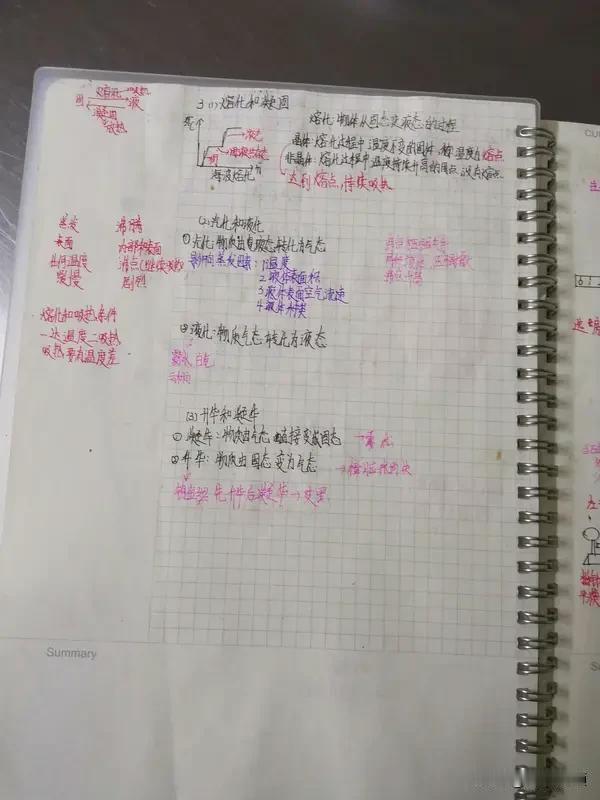 熔化 吸热
固 液
凝固
放热
3 (1) 熔化和凝固
熔化:物体从固态变液态的过程
晶体:熔化过程中温度不变的固体,有熔点
非晶体:熔化过程中温度持续升高的固体,没有熔点
达到熔点,持续吸热
液态
固液共存态
固
海波熔化
蒸发 沸腾
表面 内部和表面
任何温度 沸点(继续吸热)
缓慢 剧烈
(2) 汽化和液化
①汽化:物质由液态转化为气态
影响蒸发因素:1 温度
2 液体表面积
3 液体表面空气流速
4 液体种类
熔化和吸热条件
一达温度二吸热
吸热要有温度差
②液化:物质气态转化为液态
白气
(3) 升华和凝华
①凝华:物质由气态直接变成固态
②升华:物质由固态变为气态
先升华后凝华→变黑
Summary